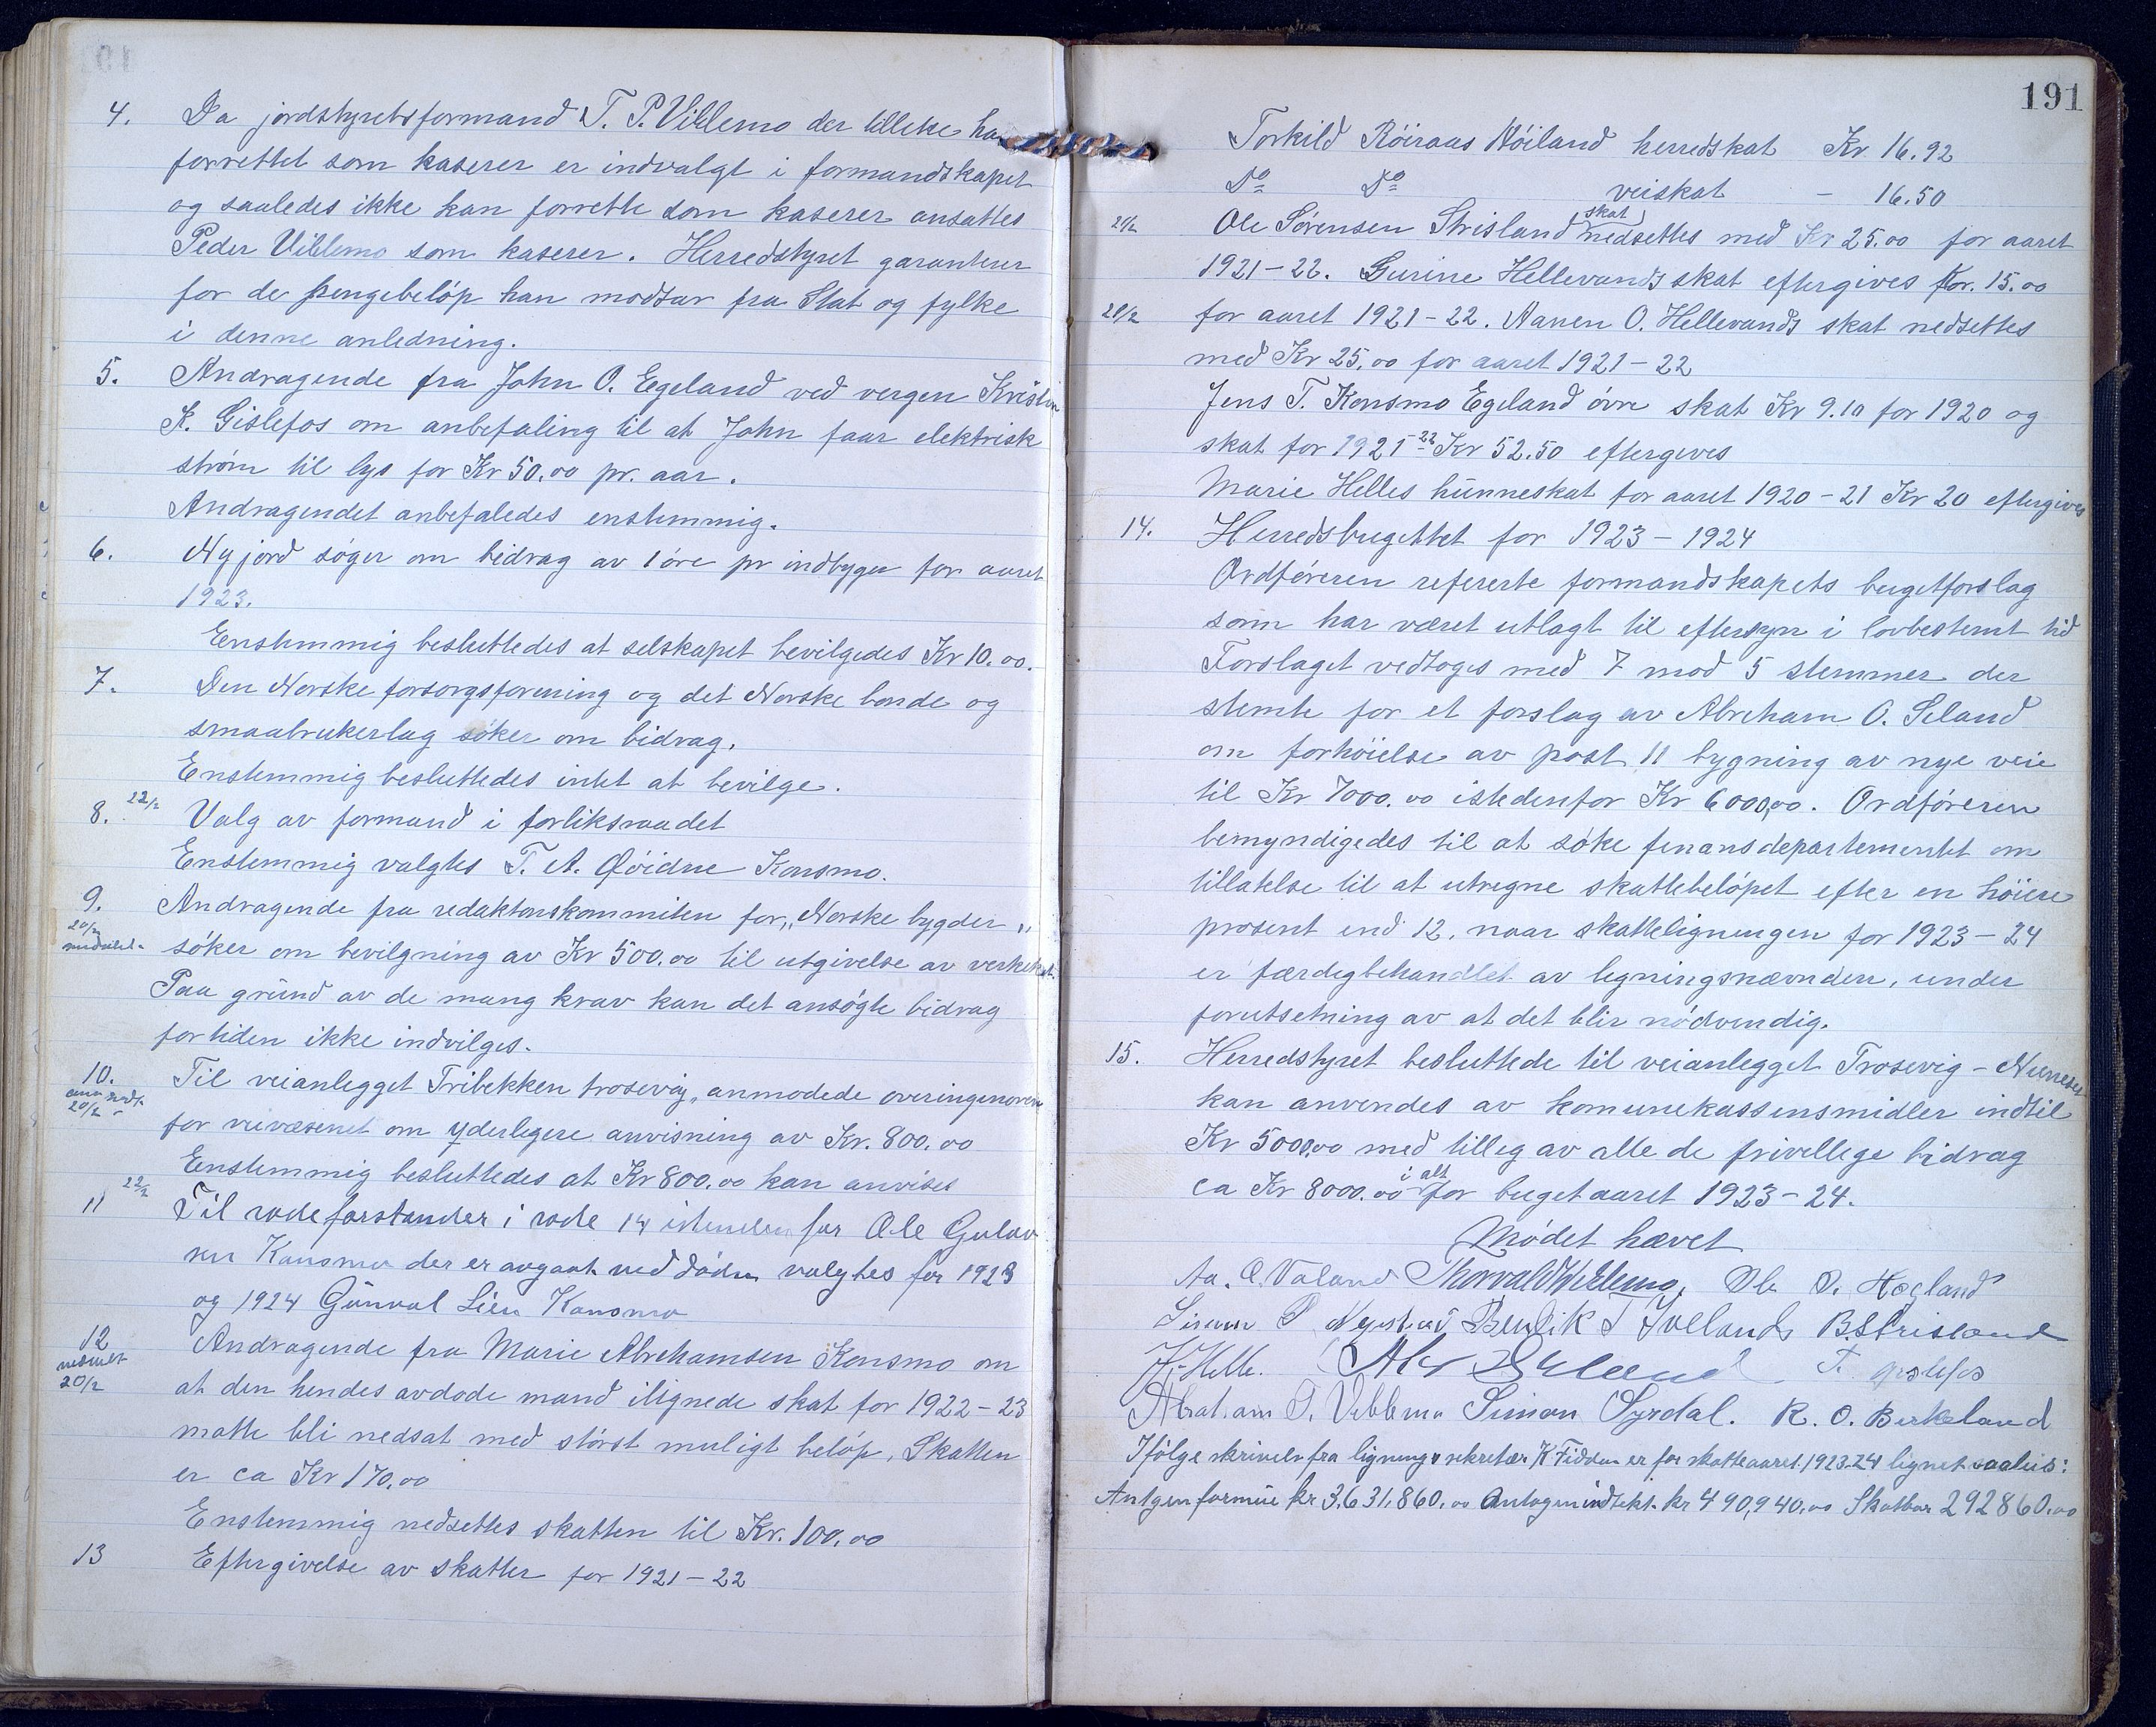 4. Da jordstyretsformand T. P. Viblemo der tilleke har
forrettet som kaserer er indvalgt i formandskapet
og saaledes ikke kan forrette som kaserer ansattes
Peder Viblemo som kaserer. Herredstyret garanterer
for de pengebeløp han modtar fra Stat og fylke
i denne anledning.
5. Andragende fra John O. Egeland ved vergen Kristen
K. Gislefos om anbefaling til at John faar elektrisk
strøm til lys for Kr 50.00 pr. aar.
Andragendet anbefaledes enstemmig.
6. Ny jord søger om bidrag av 1 øre pr indbyger for aaret
1923.
Enstemmig besluttedes at selskapet bevilgedes Kr 10.00.
7. Den Norske forsorgsforening og det Norske bonde og
smaabrukerlag søker om bidrag.
Enstemmig besluttedes intet at bevilge.
8. 22/2 Valg av formand i forliksraadet
Enstemmig valgtes T. A. Øvidne Konsmo.
9. Andragende fra redaktonskommiten for „Norske bygder„
20/2
søker om bevilgning av Kr 500.00 til utgivelse av verket.
Paa grund av de mang krav kan det ansøgte bidrag
fortiden ikke indvilges.
10. Til veianlegget Tribekken trosevig, anmodede overingeniøren
20/2
for veivæsenet om yderligere anvisning av Kr. 800.00
Enstemmig besluttedes at Kr 800.00 kan anvises
11 22/2 Til rodeforstander i rode 14 istedenfor Ole Gulov
sen Konsmo der er avgaat ved døden valgtes for 1923
og 1924 Gunval Lien Konsmo
12 Andragende fra Marie Abrehamsen Konsmo om
20/2 at den hendes avdøde mand ilignede skat for 1922-23
matte bli nedsat med størst muligt beløp. Skatten
er ca Kr 170.00
Enstemmig nedsettes skatten til Kr. 100.00
13 Eftergivelse av skatter for 1921-22
191
Torkild Røiraas Høiland herredskat Kr 16.92
Do Do veiskat - 16.50
21/2 Ole Sørensen Strisland skat nedsettes med Kr 25.00 for aaret
1921-22. Gurine Hellevands skat eftergives Kr. 15.00
20/2 for aaret 1921-22. Aanen O. Hellevands skat nedsettes
med Kr 25.00 for aaret 1921-22
Jens T. Konsmo Egeland øvre skat Kr 9.10 for 1920 og
skat for 1921-22 Kr 52.50 eftergives
Marie Helles hunneskat for aaret 1920-21 Kr 20 eftergives
14. Herredsbugettet for 1923-1924
Ordføreren refererte formandskapets bugetforslag
som har været utlagt til eftersyn i lovbestemt tid
Forslaget vedtoges med 7 mod 5 stemmer der
stemte for et forslag av Abreham O. Seland
om forhøielse av post 11 bygning av nye veie
til Kr 7000.00 istedenfor Kr 6000,00. Ordføreren
bemyndigedes til at søke finansdepartementet om
tillatelse til at utregne skattebeløpet efter en høiere
prosent end 12, naar skatteligningen for 1923-24
er færdigbehandlet av ligningsnævnden, under
forutsetning av at det blir nødvendig.
15. Herredstyret besluttede til veianlegget Trosevig -
kan anvendes av komunekassensmidler indtil
Kr 5000,00 med tillæg av alle de frivellege bidrag
ca Kr 8000.00 i alt for bugetaaret 1923-24.
Mødet hævet
Aa. O. Valand Thorvald Viblemo, Ole O. Hægland
P Nystad Bendik T Ivelands B. Strisland
J. Helle. Abr O Seland T. Gislefos
Abraham T. Viblemo Simon Syrdal. K. O. Birkeland
Ifølge skrivelse fra lignings sekretær K Fiddan er for skatteaaret 1923-24 lignet saaleis:
Antgen formue kr 3,631,860.00 Antagen indtekt kr 490,940.00 Skatbar 292860.00